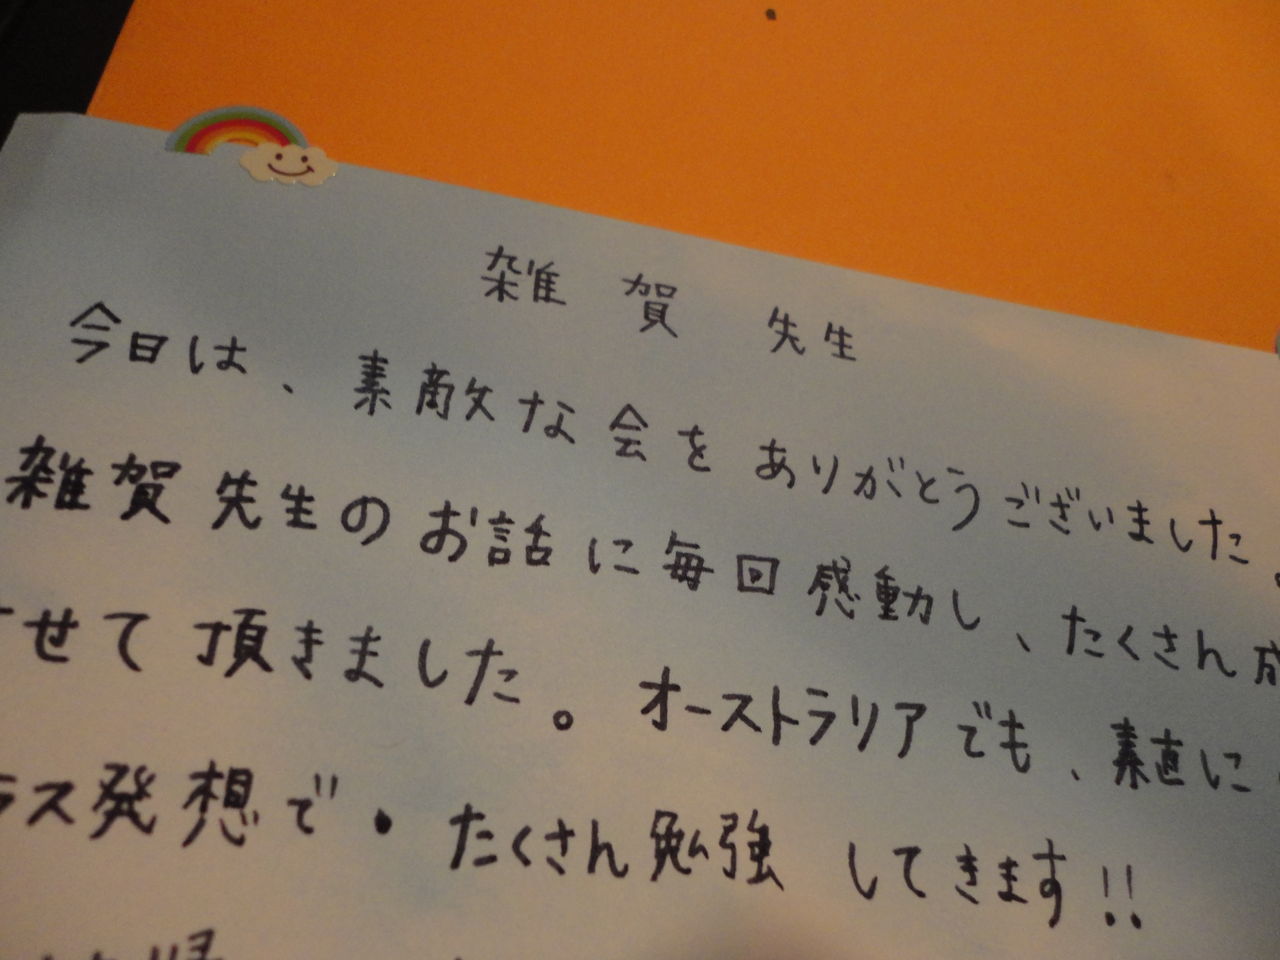 雑賀 先生
今日は、素敵な会をありがとうございました。
雑賀先生のお話に毎回感動し、たくさん成
せて頂きました。オーストラリアでも、素直に
ラス発想で・たくさん勉強してきます!!